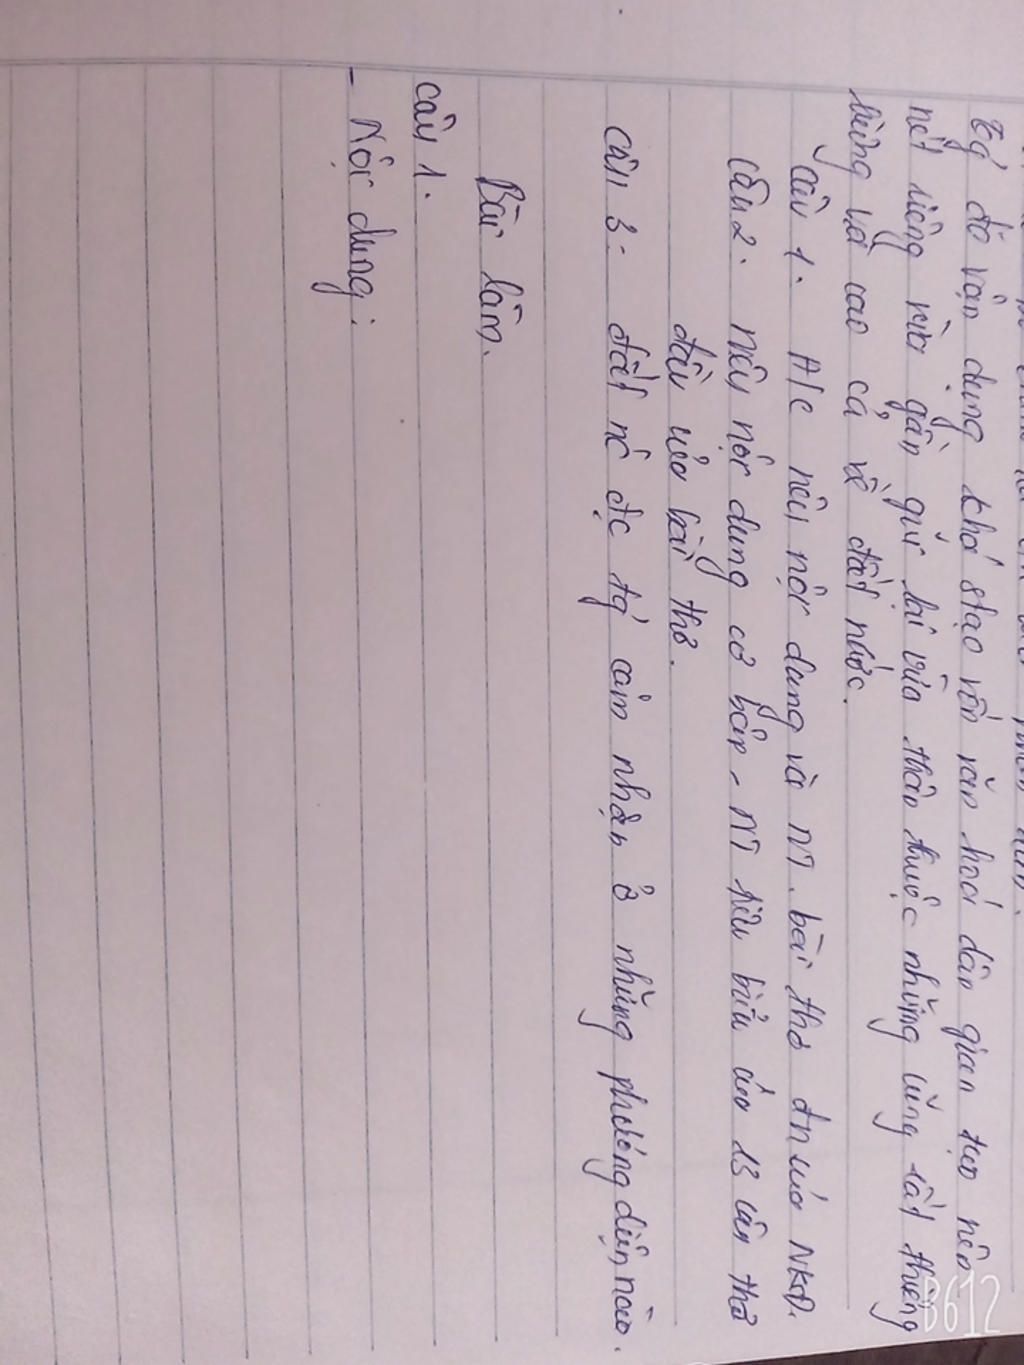 tg' đã vận dụng khá stạo vốn văn hoá dân gian tạo nên
nét riêng vừa gần gũi lại vừa thân thuộc nhưng cũng rất thiêng
liêng và cao cả về đất nước.
Câu 1. A/c nêu nội dung và NT. bài thơ đn của NKĐ.
Câu 2. nêu nội dung cơ bản - NT tiêu biểu của 13 câu thơ
đầu của bài thơ.
Câu 3. đất nc đc tg' cảm nhận ở những phương diện nào.
Bài làm.
Câu 1.
- Nội dung:
B612